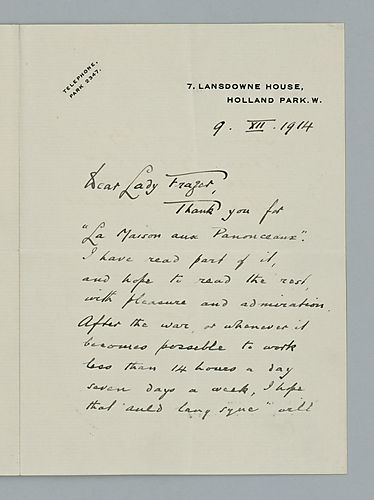 TELEPHONE,
PARK 2347.
7. LANSDOWNE HOUSE,
HOLLAND PARK. W.
9. XII. 1914
Dear Lady Frazer,
Thank you for
"La Maison aux Panonceaux".
I have read part of it,
and hope to read the rest,
with pleasure and admiration.
After the war, or whenever it
becomes possible to work
less than 14 hours a day
seven days a week, I hope
that "auld lang syne" will